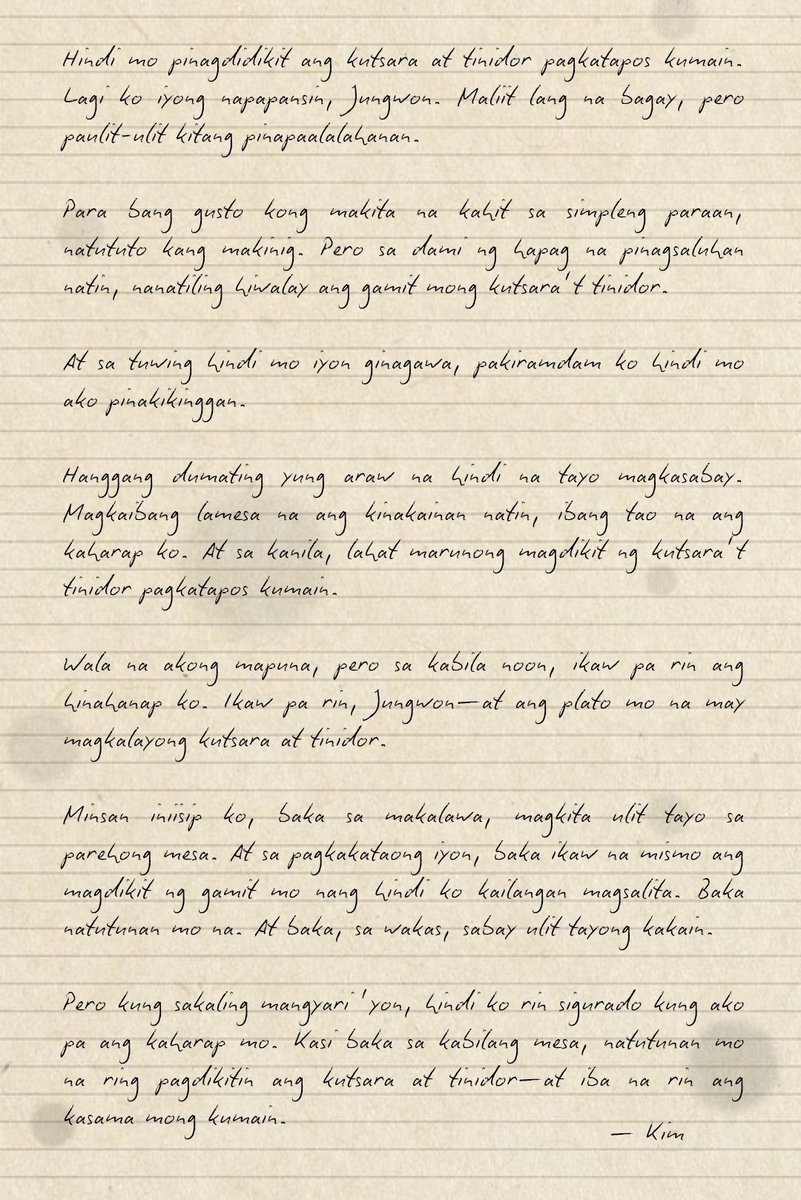 Hindi mo pinagdidikit ang kutsara at tinidor pagkatapos kumain.
Lagi ko iyong napapansin, Jungwon. Maliit lang na bagay, pero
paulit-ulit kitang pinapaalalahanan.
Para bang gusto kong makita na kahit sa simpleng paraan,
natututo kang makinig. Pero sa dami ng hapag na pinagsaluhan
natin, nanatiling hiwalay ang gamit mong kutsara't tinidor.
At sa tuwing hindi mo iyon ginagawa, pakiramdam ko hindi mo
ako pinakikinggan.
Hanggang dumating yung araw na hindi na tayo magkasabay.
Magkaibang lamesa na ang kinakainan natin, ibang tao na ang
kaharap ko. At sa kanila, lahat marunong magdikit ng kutsara't
tinidor pagkatapos kumain.
Wala na akong mapuna, pero sa kabila noon, ikaw pa rin ang
hinahanap ko. Ikaw pa rin, Jungwon—at ang plato mo na may
magkalayong kutsara at tinidor.
Minsan iniisip ko, baka sa makalawa, magkita ulit tayo sa
parehong mesa. At sa pagkakataong iyon, baka ikaw na mismo ang
magdikit ng gamit mo nang hindi ko kailangan magsalita. Baka
natutunan mo na. At baka, sa wakas, sabay ulit tayong kakain.
Pero kung sakaling mangyari 'yon, hindi ko rin sigurado kung ako
pa ang kaharap mo. Kasi baka sa kabilang mesa, natutunan mo
na ring pagdikitin ang kutsara at tinidor—at iba na rin ang
kasama mong kumain.
— Kim